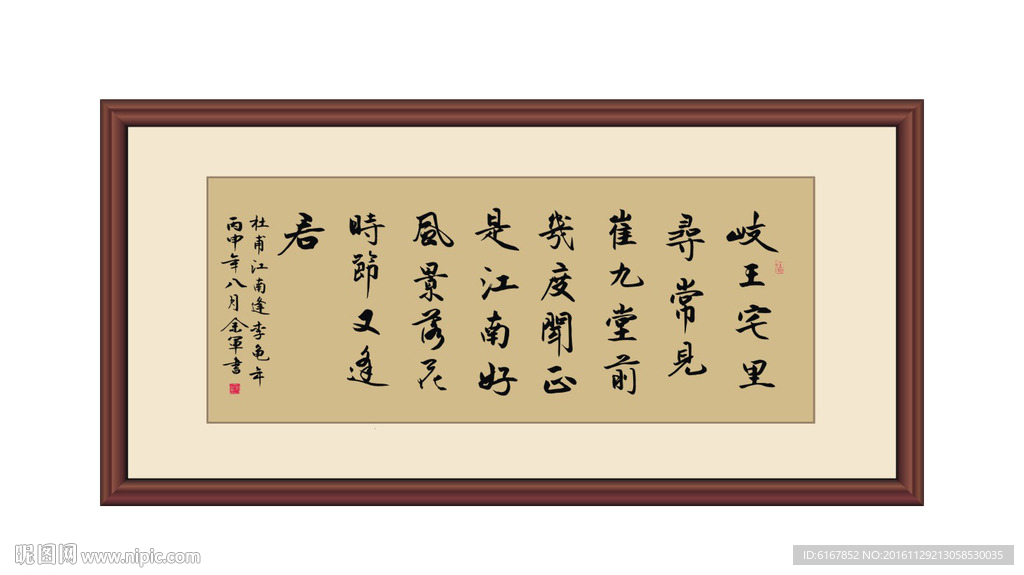 岐王宅里
尋常見
崔九堂前
幾度聞正
是江南好
風景落花
時節又逢
君
杜甫江南逢李龟年
丙申年八月金軍書
昵图网 www.nipic.com
ID:6167852 NO:20161129213058530035